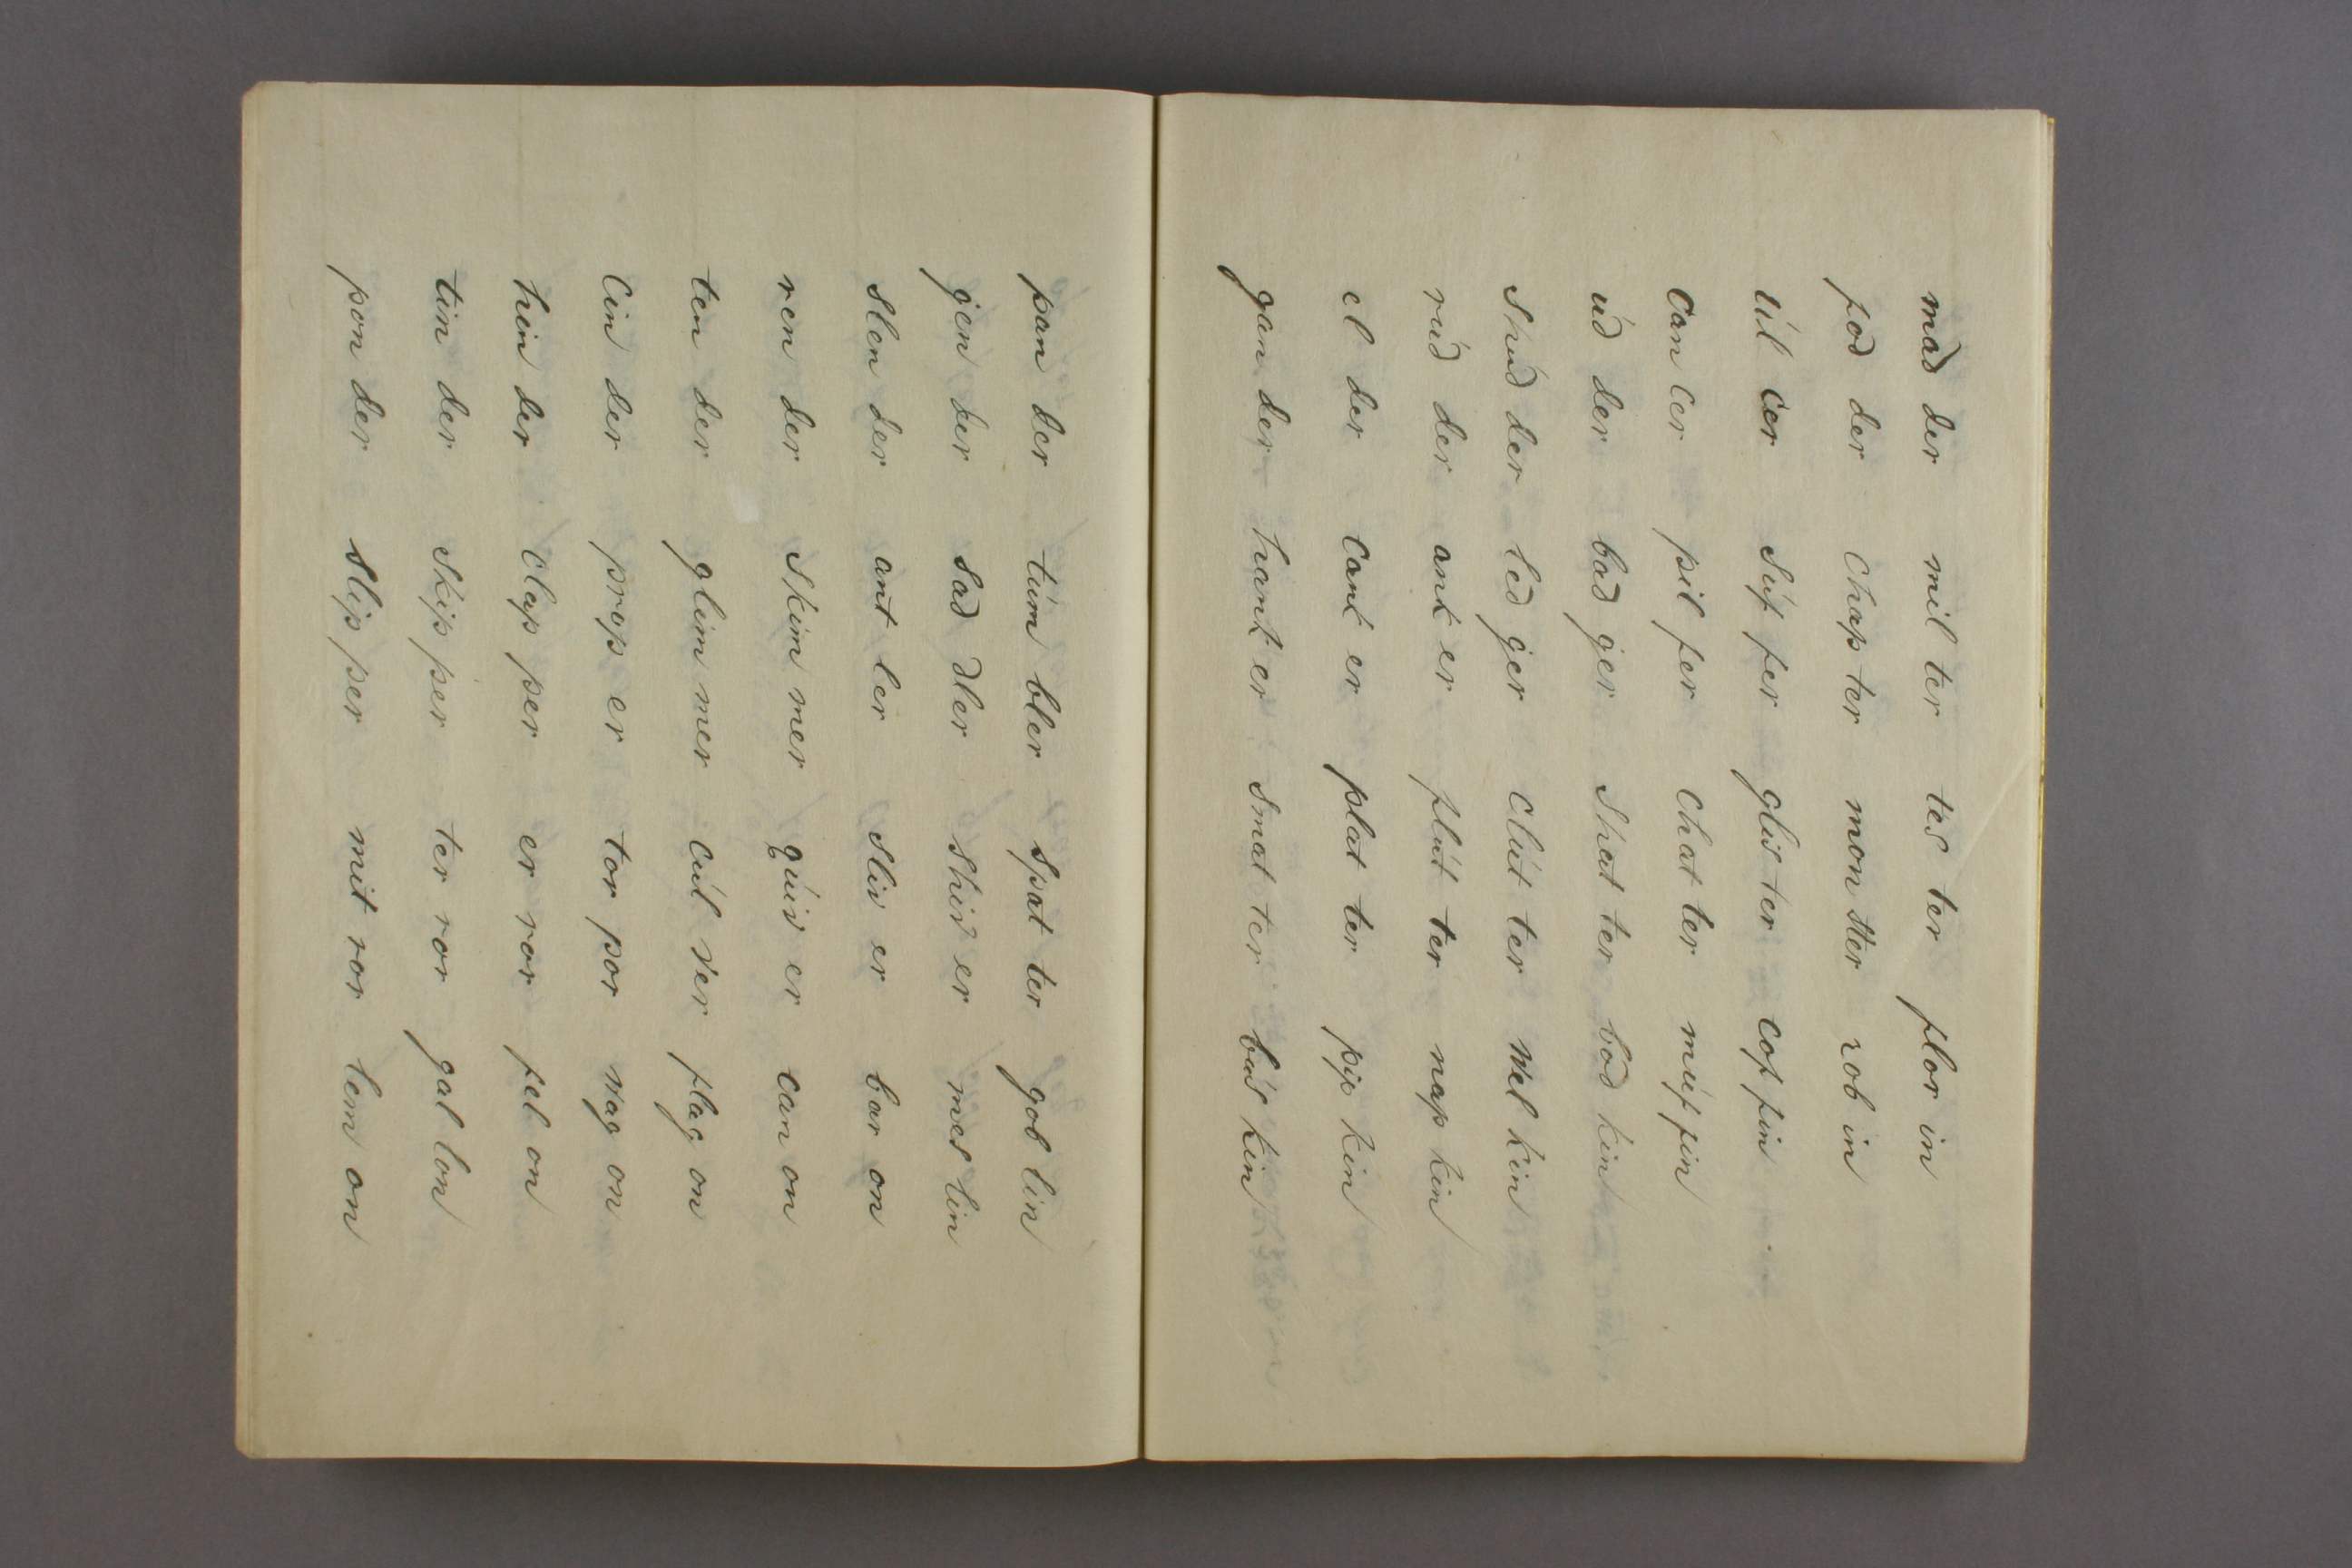 mad der mil ter tes ter flor in
fod der chap ter mon ster rob in
úl cer súf fer glis ter cof fin
can cer pil fer chat ter múf fin
úd der bad ger shat ter bod kin
shúd der led ger clút ter wel kin
rúd der ank er flút ter nap kin
el der cank er plat ter pip kin
gan der hank er smat ter bús kin
pan der túm bler spat ter gob lin
gen der sad dler shiv er mes lin
slen der ant ler sliv er bar on
ren der skim mer qúiv er can on
ten der glim mer cúl ver flag on
cin der prop er tor por wag on
hin der clap per er ror fel on
tin der skip per ter ror gal lon
pon der slip per mit ror lem on